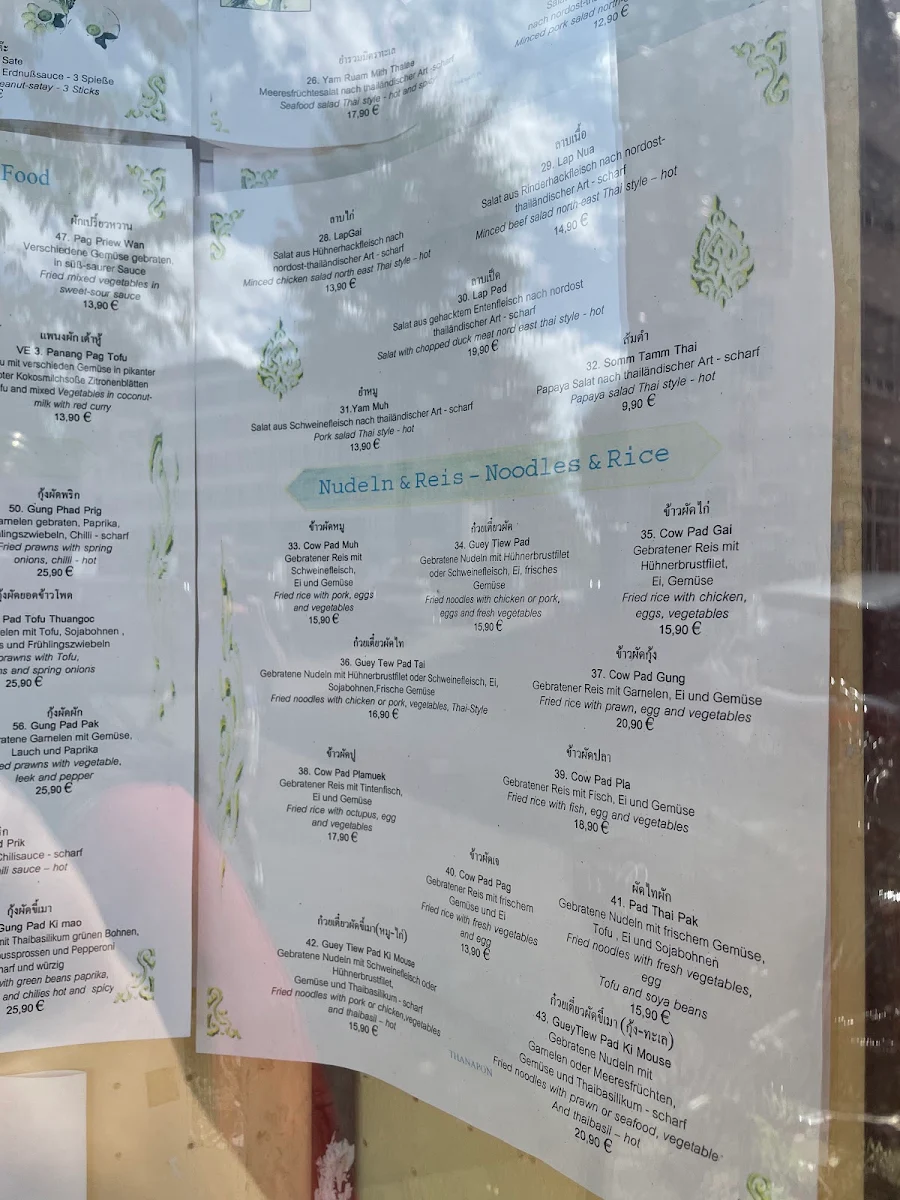 Sate
Erdnußsauce - 3 Spieße
- 3 Sticks
Food
ผักเปรี้ยวหวาน
47. Pag Priew Wan
Verschiedene Gemüse gebraten,
in süß-saurer Sauce
Fried mixed vegetables in
sweet-sour sauce
13,90 €
แพนงผัก เต้าหู้
VE 3. Panang Pag Tofu
mit verschieden Gemüse in pikanter
Kokosmilchsoße Zitronenblätten
and mixed Vegetables in coconut-
milk with red curry
13,90 €
กุ้งผัดพริก
50. Gung Phad Prig
gebraten, Paprika,
Chilli - scharf
Fried prawns with spring
onions, chilli - hot
25,90 €
Pad Tofu Thuangoc
mit Tofu, Sojabohnen ,
und Frühlingszwiebeln
with Tofu,
and spring onions
25,90 €
กุ้งผัดผัก
56. Gung Pad Pak
Garnelen mit Gemüse,
Lauch und Paprika
prawns with vegetable,
leek and pepper
25,90 €
Prik
Chilisauce - scharf
sauce – hot
กุ้งผัดขี้เมา
Gung Pad Ki mao
mit Thaibasilikum grünen Bohnen,
und Pepperoni
und würzig
with green beans paprika,
and chilies hot and spicy
25,90 €
26. Yam Ruam Mith Thalee
Meeresfrüchtesalat nach thailändischer Art -scharf
Seafood salad Thai style - hot and
17,90 €
nach
Minced pork salad
12,90 €
ลาบไก่
28. LapGai
Salat aus Hühnerhackfleisch nach
nordost-thailändischer Art - scharf
Minced chicken salad north east Thai style – hot
13,90 €
ลาบเนื้อ
29. Lap Nua
Salat aus Rinderhackfleisch nach nordost-
thailändischer Art - scharf
Minced beef salad north-east Thai style – hot
14,90 €
ลาบเป็ด
30. Lap Ped
Salat aus gehacktem Entenfleisch nach nordost
thailändischer Art - scharf
Salat with chopped duck meat nord east thai style - hot
19,90 €
ยำหมู
31.Yam Muh
Salat aus Schweinefleisch nach thailändischer Art - scharf
Pork salad Thai style - hot
13,90 €
ส้มตำ
32. Somm Tamm Thai
Papaya Salat nach thailändischer Art - scharf
Papaya salad Thai style - hot
9,90 €
Nudeln & Reis - Noodles & Rice
ข้าวผัดหมู
33. Cow Pad Muh
Gebratener Reis mit
Schweinefleisch,
Ei und Gemüse
Fried rice with pork, eggs
and vegetables
15,90 €
ก๋วยเตี๋ยวผัด
34. Guey Tiew Pad
Gebratene Nudeln mit Hühnerbrustfilet
oder Schweinefleisch, Ei, frisches
Gemüse
Fried noodles with chicken or pork,
eggs and fresh vegetables
15,90 €
ข้าวผัดไก่
35. Cow Pad Gai
Gebratener Reis mit
Hühnerbrustfilet,
Ei, Gemüse
Fried rice with chicken,
eggs, vegetables
15,90 €
ก๋วยเตี๋ยวผัดไท
36. Guey Tew Pad Tai
Gebratene Nudeln mit Hühnerbrustfilet oder Schweinefleisch, Ei,
Sojabohnen,Frische Gemüse
Fried noodles with chicken or pork, vegetables, Thai-Style
16,90 €
ข้าวผัดกุ้ง
37. Cow Pad Gung
Gebratener Reis mit Garnelen, Ei und Gemüse
Fried rice with prawn, egg and vegetables
20,90 €
ข้าวผัดปู
38. Cow Pad Plamuek
Gebratener Reis mit Tintenfisch,
Ei und Gemüse
Fried rice with octupus, egg
and vegetables
17,90 €
ข้าวผัดปลา
39. Cow Pad Pla
Gebratener Reis mit Fisch, Ei und Gemüse
Fried rice with fish, egg and vegetables
18,90 €
ข้าวผัดเจ
40. Cow Pad Pag
Gebratener Reis mit frischem
Gemüse und Ei
Fried rice with fresh vegetables
and egg
13,90 €
ผัดไทผัก
41. Pad Thai Pak
Gebratene Nudeln mit frischem Gemüse,
Tofu , Ei und Sojabohnen
Fried noodles with fresh vegetables,
egg
Tofu and soya beans
15,90 €
ก๋วยเตี๋ยวผัดขี้เมา(หมู-ไก่)
42. Guey Tiew Pad Ki Mouse
Gebratene Nudeln mit Schweinefleisch oder
Hühnerbrustfilet,
Gemüse und Thaibasilikum - scharf
Fried noodles with pork or chicken,vegetables
and thaibasil – hot
15,90 €
ก๋วยเตี๋ยวผัดขี้เมา (กุ้ง-ทะเล)
43. GueyTiew Pad Ki Mouse
Gebratene Nudeln mit
Garnelen oder Meeresfrüchten,
Gemüse und Thaibasilikum - scharf
Fried noodles with prawn or seafood, vegetable
And thaibasil – hot
20,90 €
THANAPON